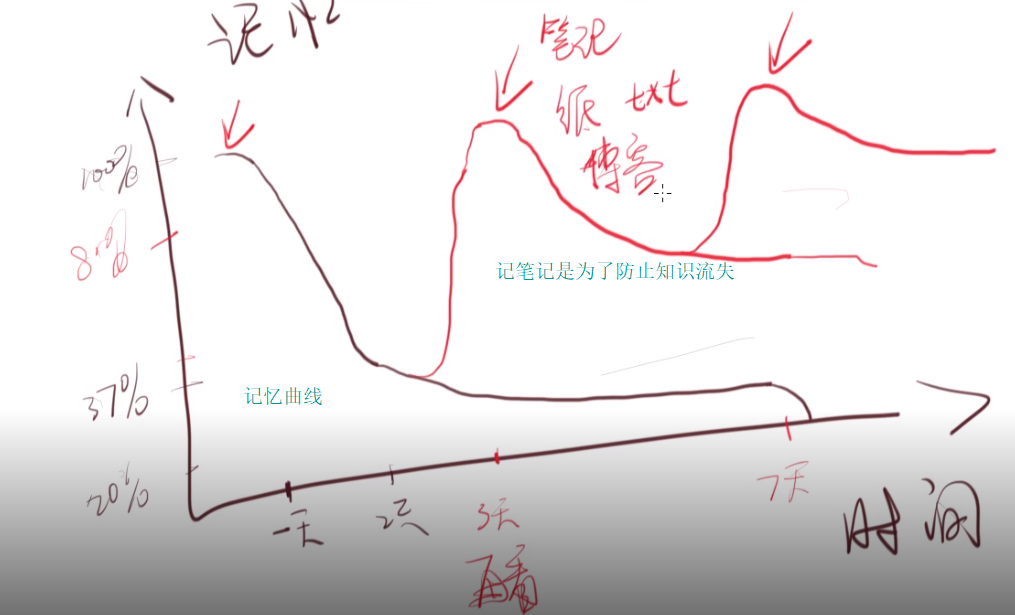 记忆
笔记
纸 txt
博客
100%
80%
记笔记是为了防止知识流失
37%
记忆曲线
20%
一天
2天
3天
7天
时间
再看